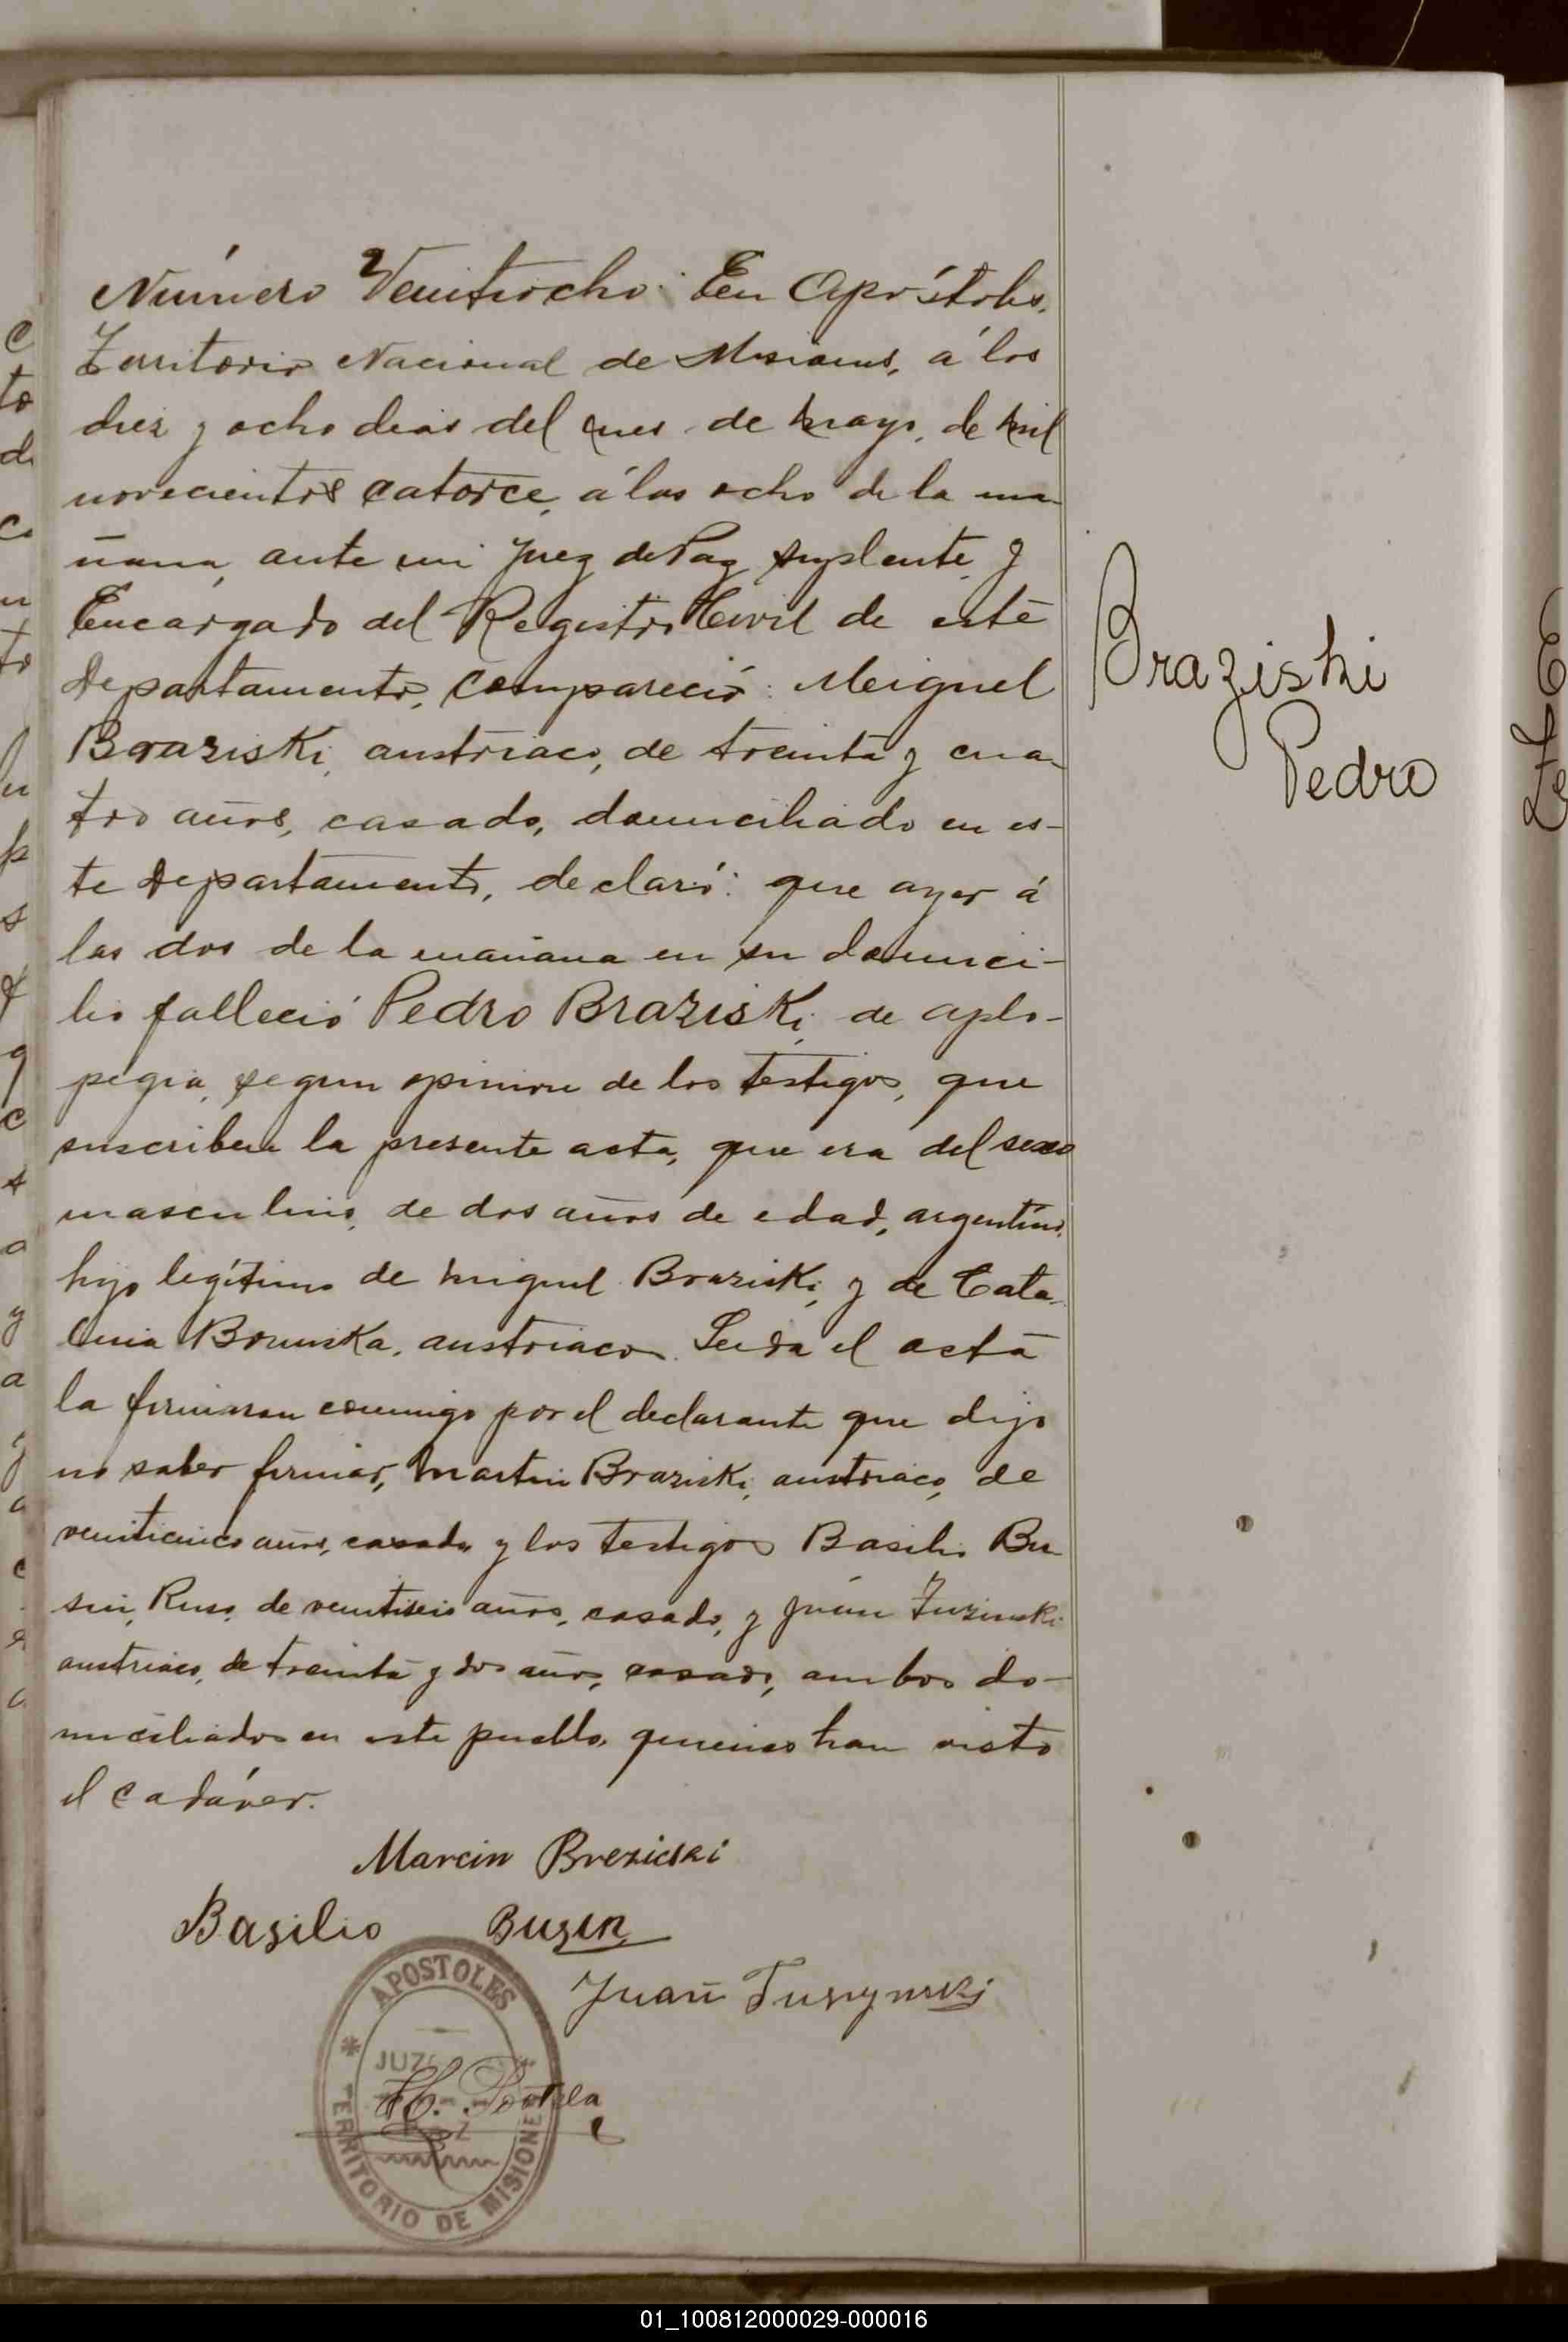 Número Veintiocho. En Apóstoles,
Territorio Nacional de Misiones, á los
diez y ocho dias del mes de Mayo, de mil
novecientos catorce, á las ocho de la ma-
ñana, ante mi Juez de Paz Suplente y
Encargado del Registro Civil de este
Departamento, compareció: Meiguel
Braziski, austriaco, de treinta y cua-
tro años, casado, domiciliado en es-
te Departamento, declaró: que ayer á
las dos de la mañana en su domici-
lio falleció Pedro Braziski, de aplo-
pegia, segun opinion de los testigos, que
suscriben la presente acta, que era del sexo
masculino, de dos años de edad, argentino,
hijo legítimo de Miguel Braziski, y de Cata-
lina austriacos. Leida el acta
la firmaron conmigo por el declarante que dijo
no saber firmar, Martin Braziski, austriaco, de
veinticinco años, casado y los testigos Basilio Bu
sin, Ruso, de veintiseis años, casado, y Juan Tuzinski
austriaco, de treinta y dos años, casado, ambos do-
miciliados en este pueblo, quienes han visto
el cadáver.
Braziski
Pedro
Marcin Brezicki
Basilio Busin
Juan Tuszynski
APOSTOLES
JUZ
TERRITORIO DE MISIONES
01_100812000029-000016